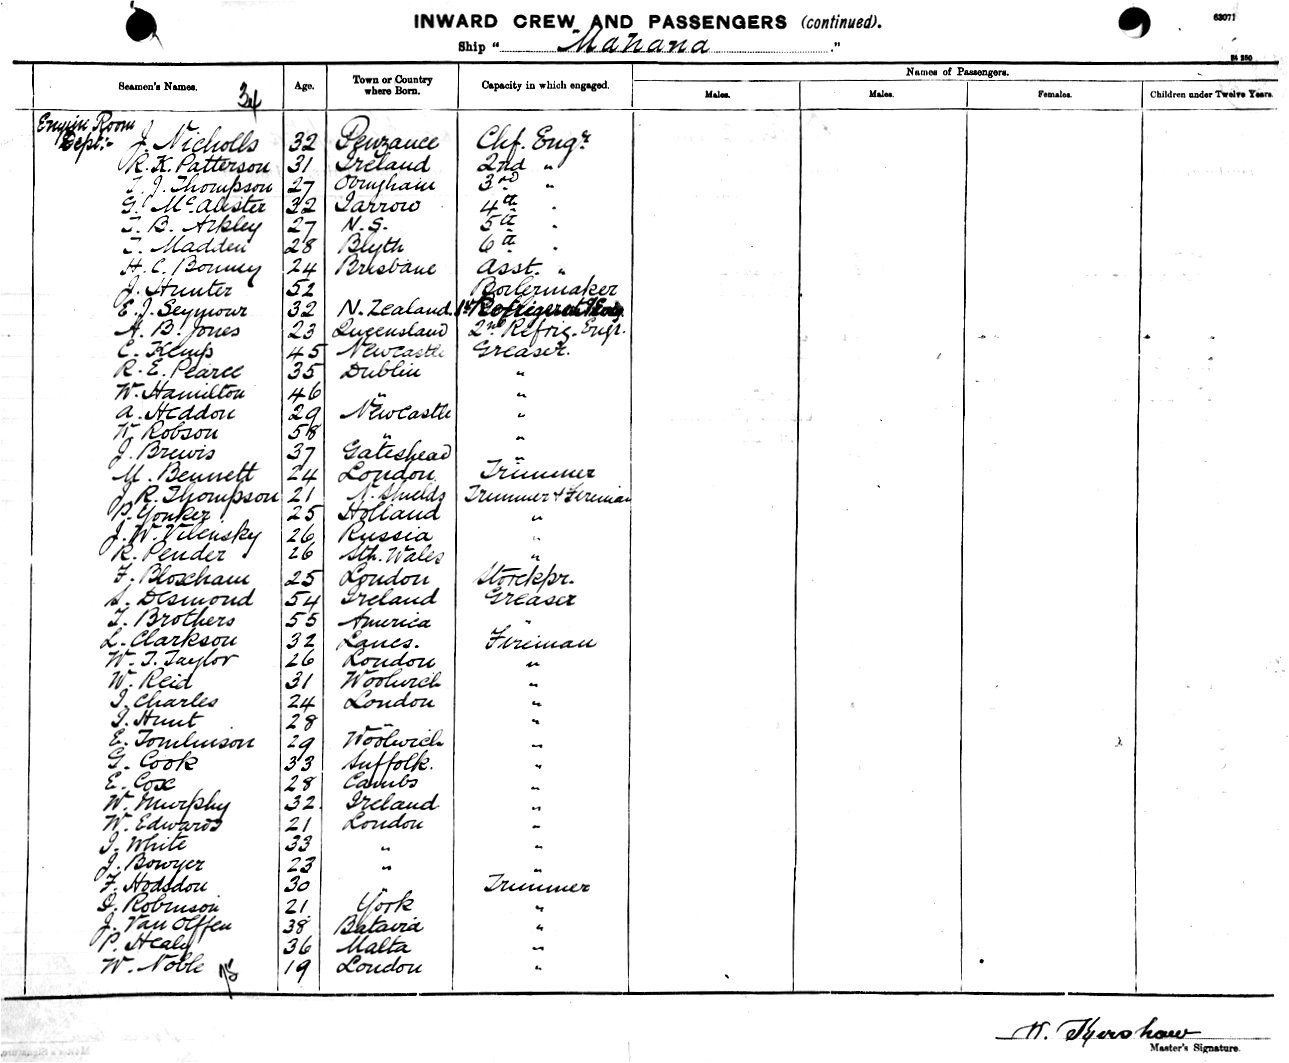 INWARD CREW AND PASSENGERS (continued).
63071
Ship "Mahana"
Seamen's Names. Age. Town or Country where Born. Capacity in which engaged. Names of Passengers.
Males. Males. Females. Children under Twelve Years.
34
Engine Room
Dept:- J. Nicholls 32 Penzance Chf. Engr.
R. K. Patterson 31 Ireland 2nd "
T. J. Thompson 27 Ovingham 3rd "
G. McAlister 32 Jarrow 4th "
T. B. Arkley 27 N.S. 5th "
T. Madden 28 Blyth 6th "
H. C. Bonney 24 Brisbane Asst. "
J. Hunter 52 Boilermaker
E. J. Seymour 32 N. Zealand 1st
A. B. Jones 23 Queensland 2nd Refrig. Engr.
C. Kemp 45 Newcastle Greaser.
R. E. Pearce 35 Dublin "
W. Hamilton 46 " "
A. Heddon 29 Newcastle "
W. Robson 58 " "
J. Brewis 37 Gateshead "
M. Bennett 24 London Trimmer
J. R. Thompson 21 N. Shields Trimmer & Fireman
P. Yonker 25 Holland "
J. W. Vilensky 26 Russia "
R. Pender 26 Sth. Wales "
F. Bloxham 25 London Storekpr.
S. Desmond 54 Ireland Greaser
T. Brothers 55 America "
L. Clarkson 32 Lancs. Fireman
W. T. Taylor 26 London "
W. Reid 31 Woolwich "
J. Charles 24 London "
J. Hunt 28 " "
E. Tomlinson 29 Woolwich "
G. Cook 33 Suffolk. "
E. Cox 28 Cambs "
W. Murphy 32 Ireland "
W. Edwards 21 London "
J. White 33 " "
J. Bowyer 23 " "
F. Hodsdon 30 " Trimmer
D. Robinson 21 York "
J. Van Olffen 38 Batavia "
P. Healy 36 Malta "
W. Noble 19 London "
W. Kershaw
Master's Signature.